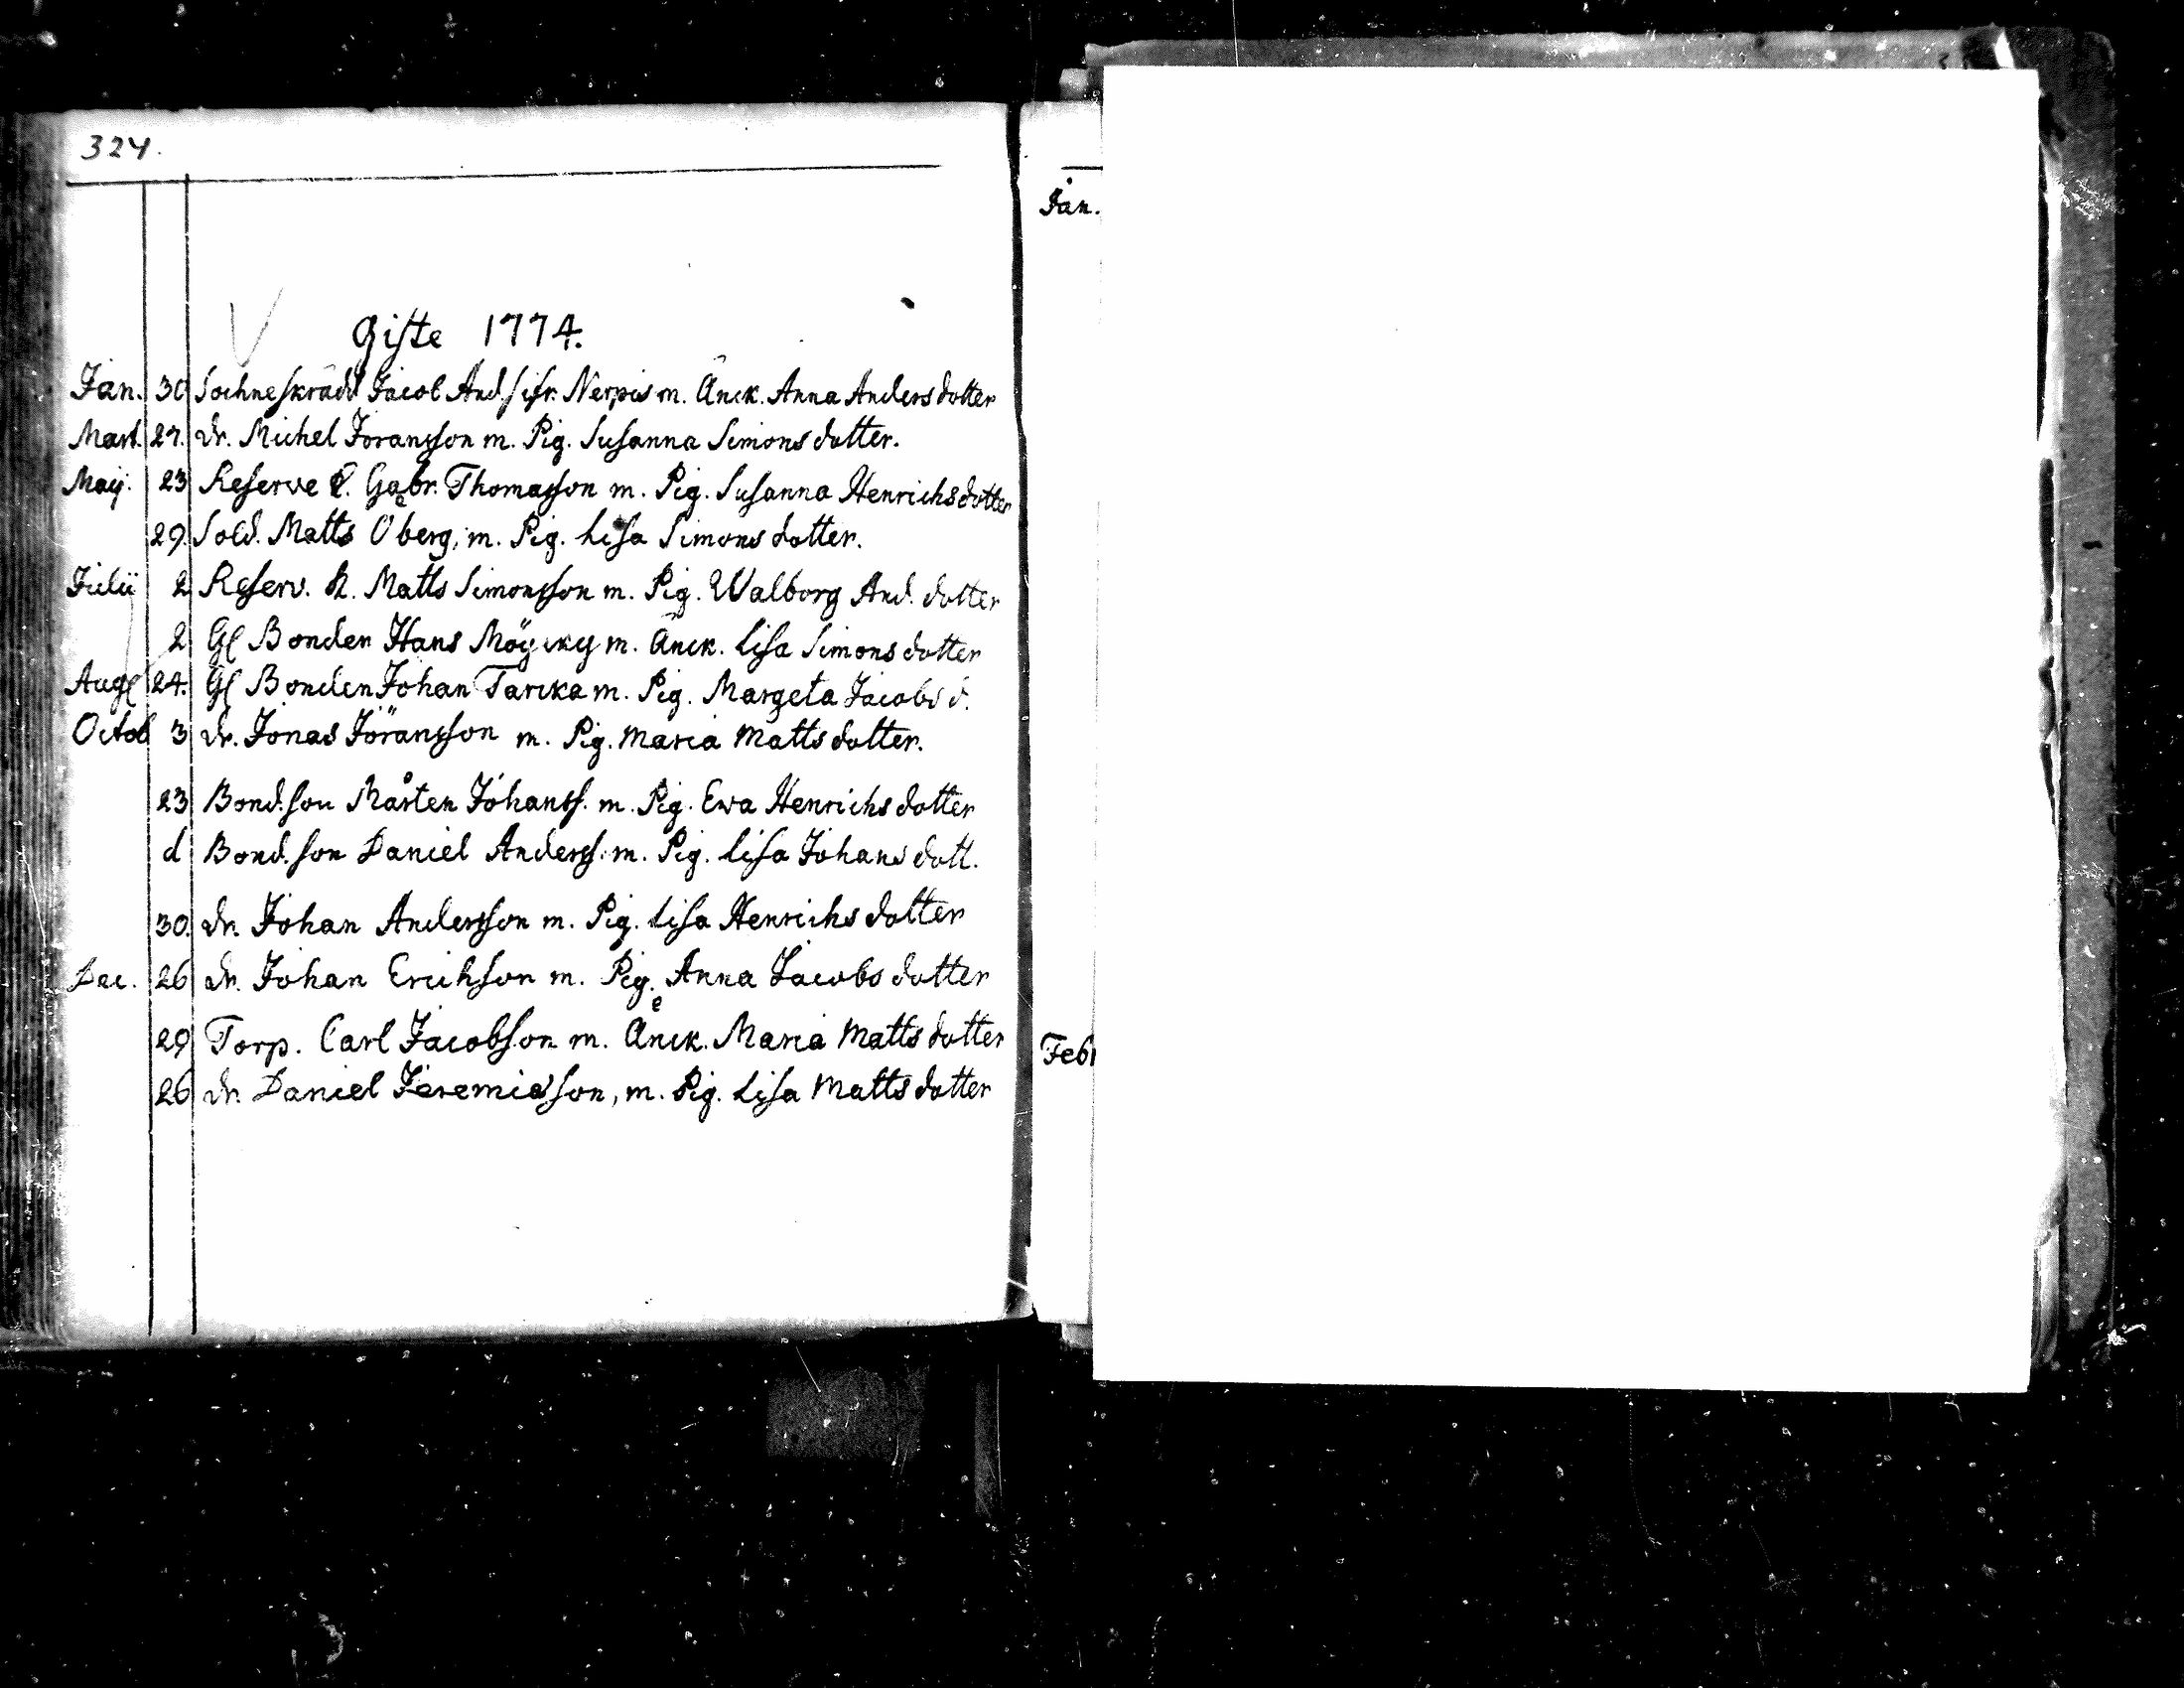 324.
Gifte 1774.
Jan. 30 Sochneskrädd. Jacob And. ifr. Nerpis m. Änck. Anna Andersdotter
Mart. 27. dr. Michel Joransson m. Pig. Susanna Simonsdotter.
Maij. 23 Reserve Gabr. Thomasson m. Pig. Susanna Henrichsdotter
29. Sold. Matts Öberg, m. Pig. Lisa Simonsdotter.
Julii 2 Reserv. K. Matts Simonsson m. Pig. Walborg And. dotter
2 Gl Bonden Hans m. Änck. Lisa Simonsdotter
Aug 24. Gl Bonden Johan Tarcka m. Pig. Margeta Jacobs d.
Octob 3 dr. Jonas Jöransson m. Pig. Maria Mattsdotter.
23 Bond.son Mårten Johanss. m. Pig. Ewa Henrichsdotter
d Bond.son Daniel Anderss. m. Pig. Lisa Johansdott.
30. dr. Johan Andersson m. Pig. Lisa Henrichsdotter
Dec. 26 dr. Johan Erichson m. Pig. Anna Jacobsdotter
29 Torp. Carl Jacobson m. Änck. Maria Mattsdotter
26 dr. Daniel Jeremiasson, m. Pig. Lisa Mattsdotter
Jan.
Febr